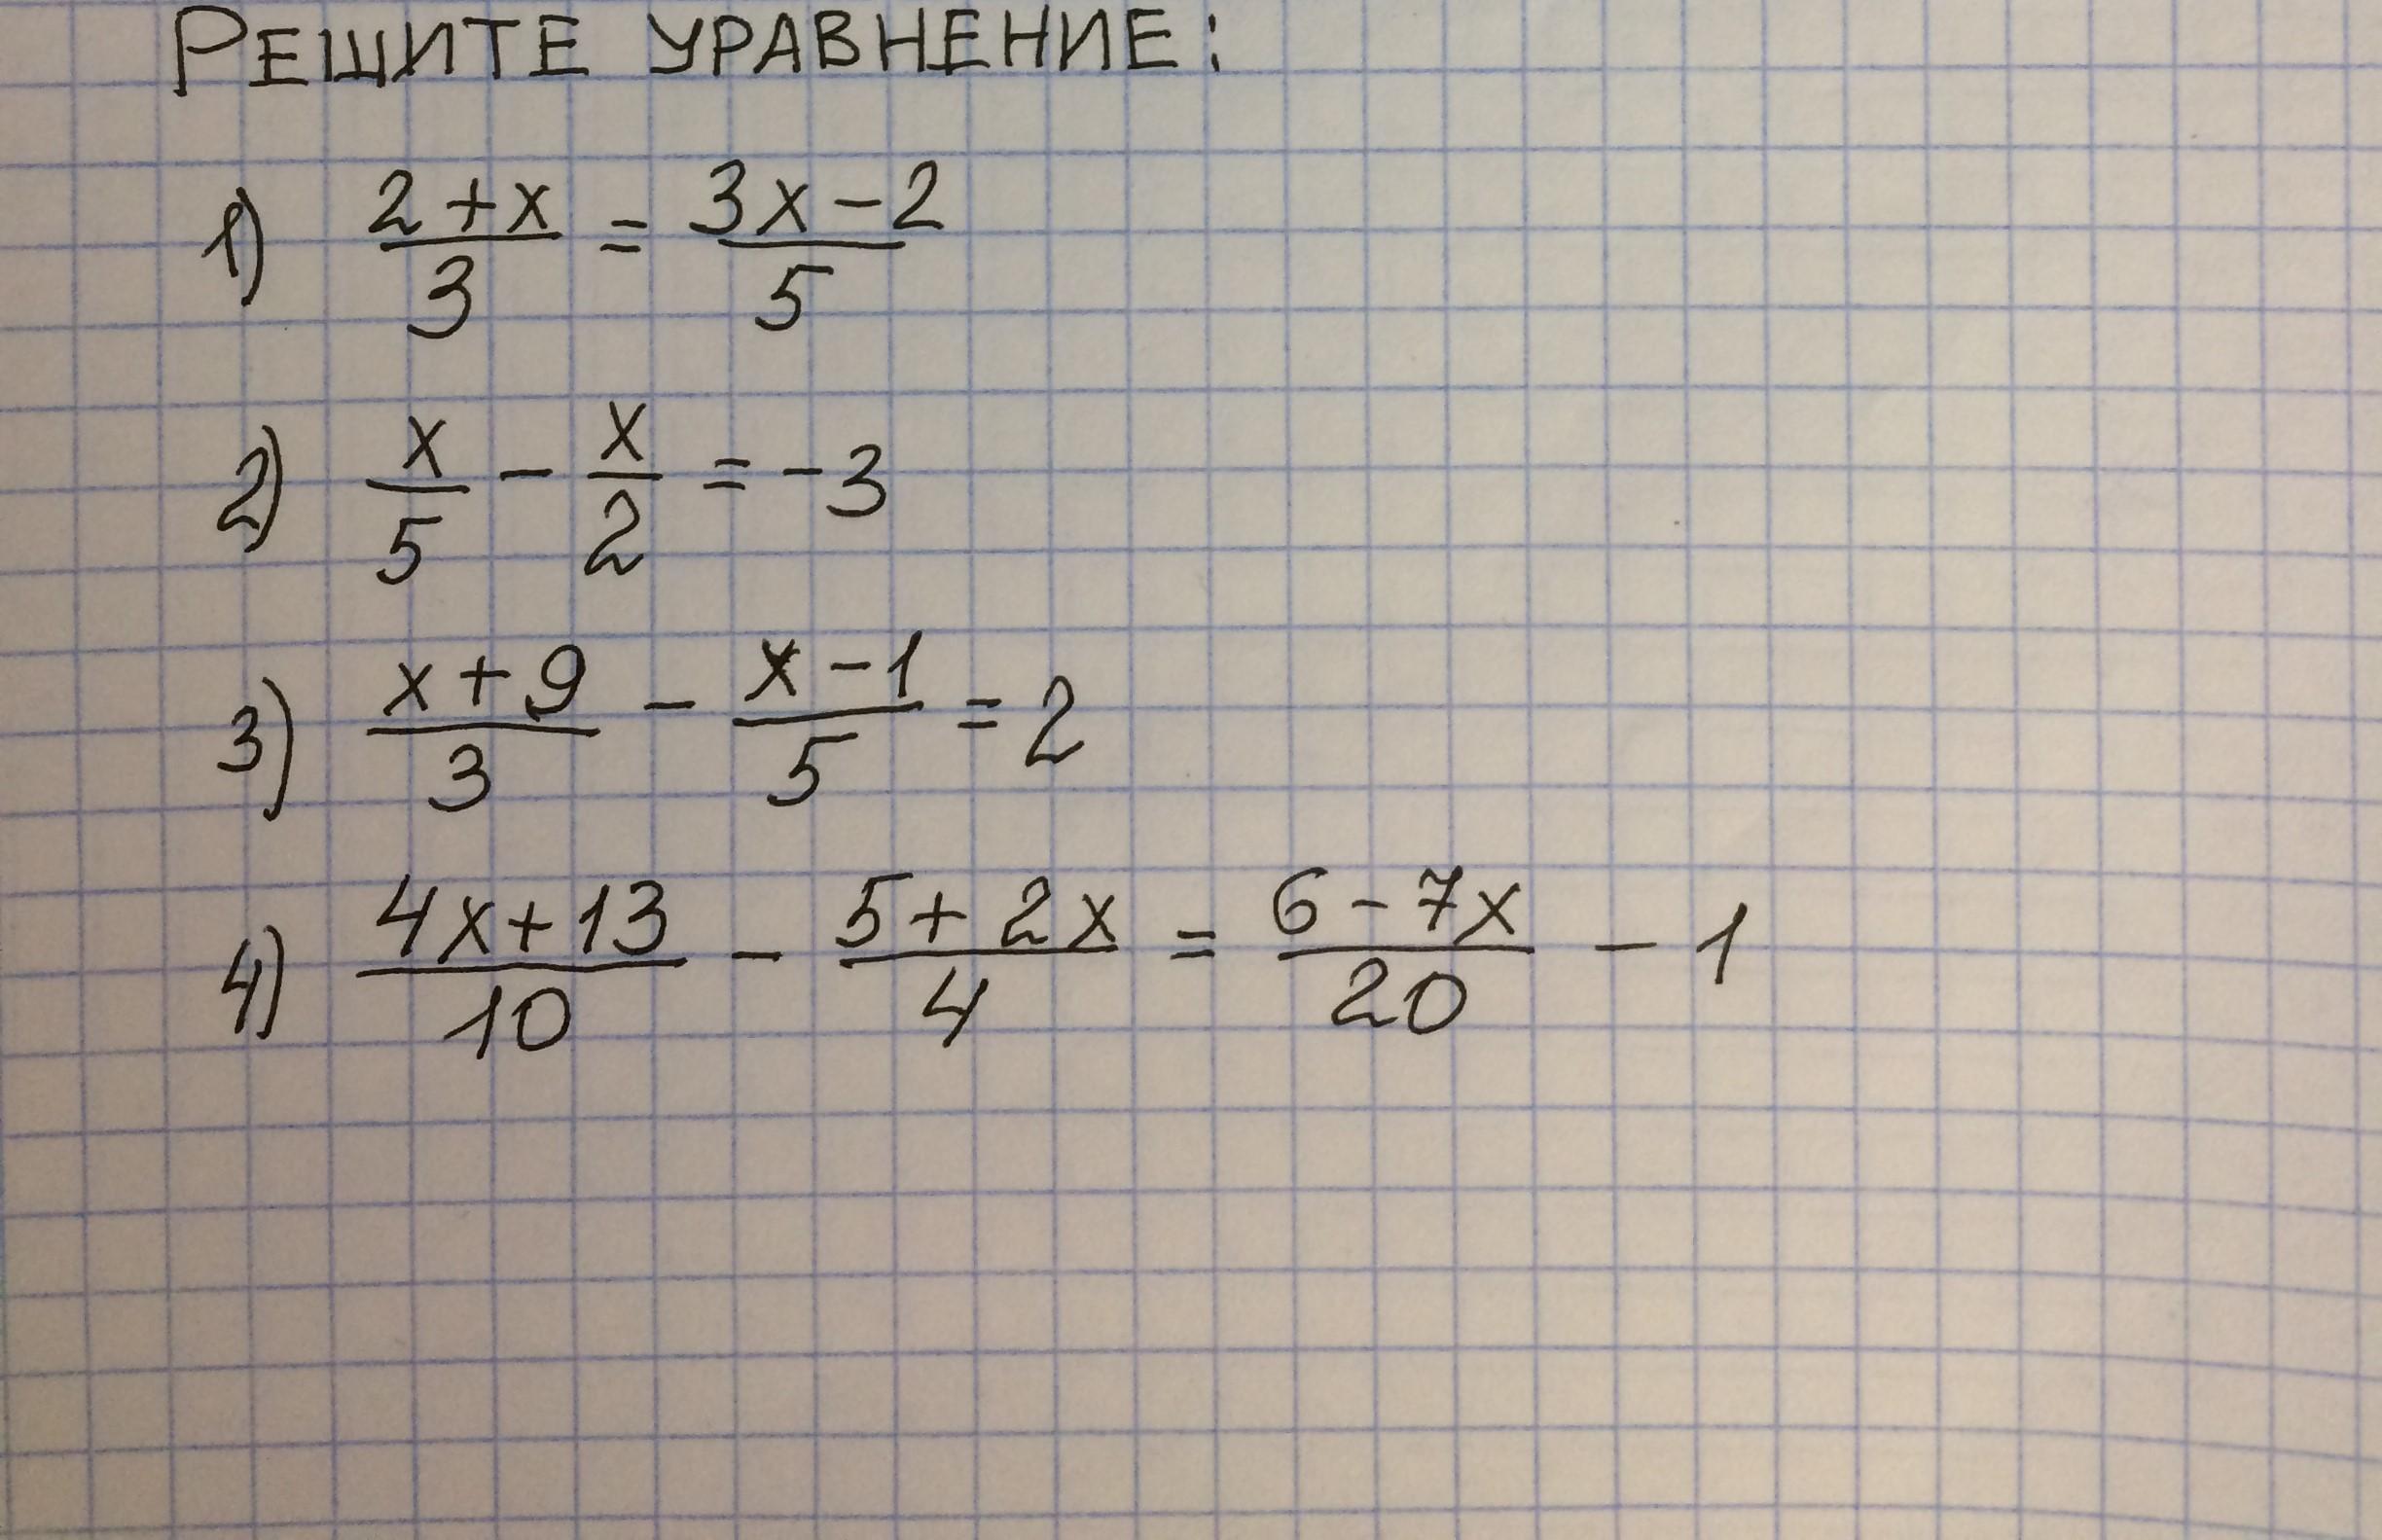 РЕШИТЕ УРАВНЕНИЕ:
1) (2+x)/3 = (3x-2)/5
2) x/5 - x/2 = -3
3) (x+9)/3 - (x-1)/5 = 2
4) (4x+13)/10 - (5+2x)/4 = (6-7x)/20 - 1